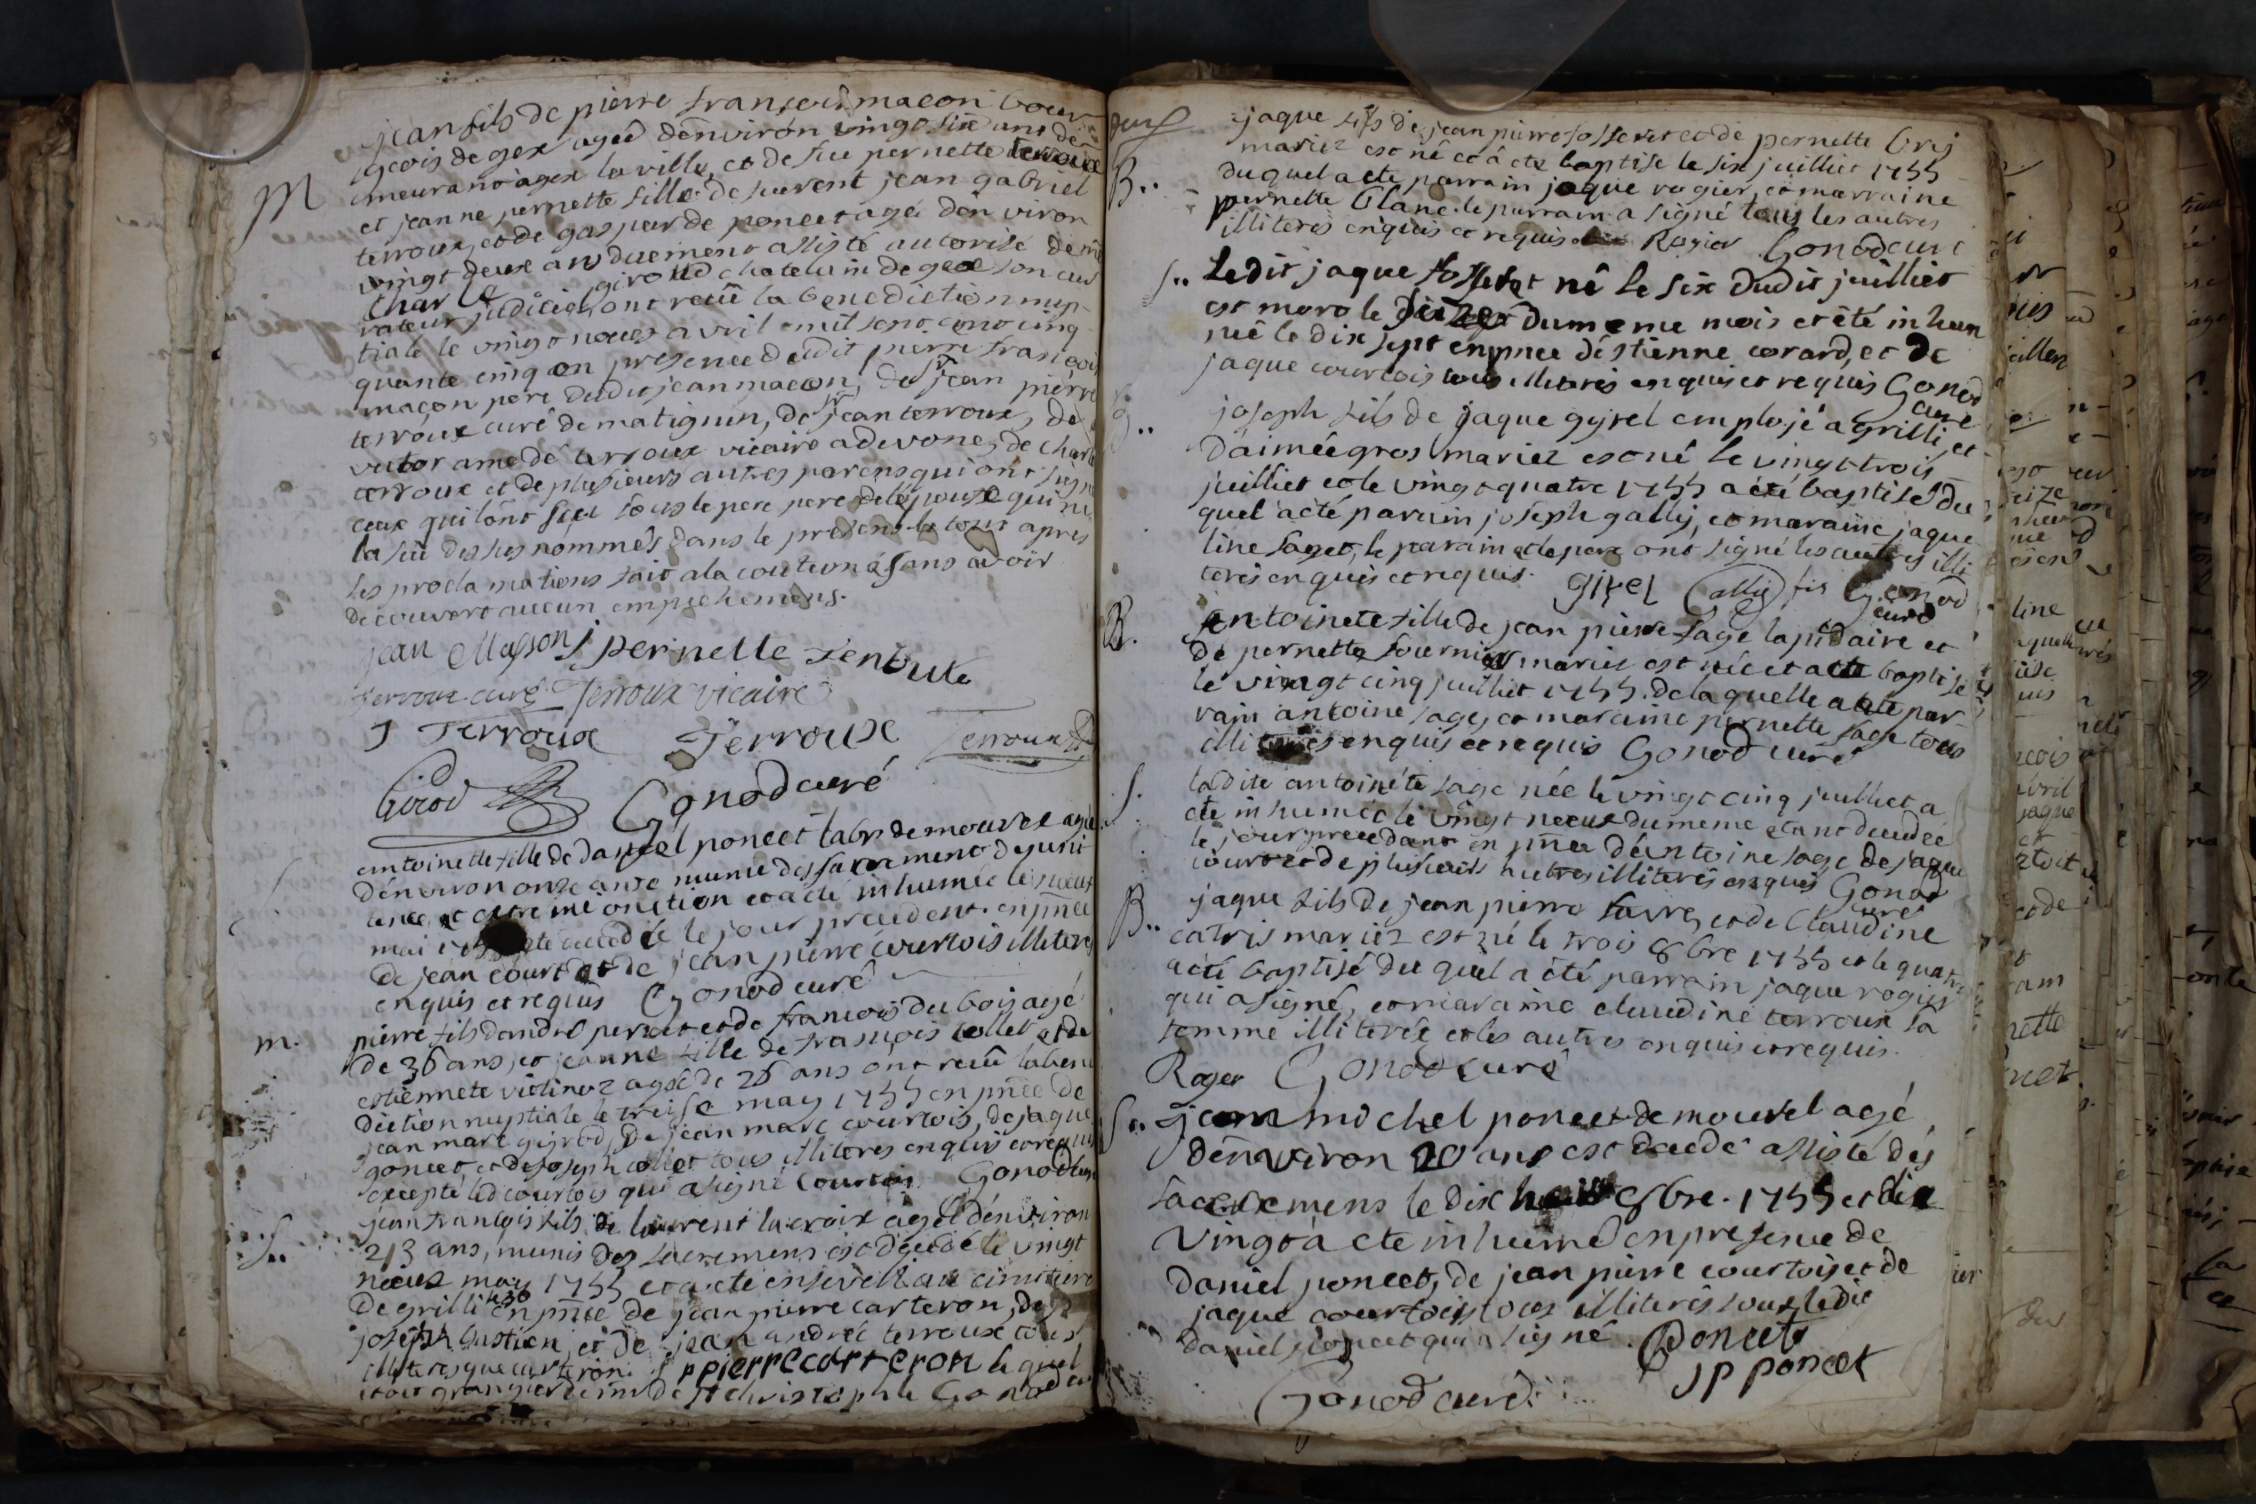 M
jean fils de pierre françois macon bour
geois de gex agé denviron vingt six ans de
meurant a gex la ville, et de feu pernette terroux
et jeanne pernette fille de laurent jean gabriel
terroux, et de gasparde poncet agée denviron
vingt deux ans duement assisté autorisé de me
Charle giroud chatelain de gex son cur
rateur judiciel ont recû la benediction nup
tiale le vingt neuf avril mil sept cent cinq
quante cinq en presence dudit pierre françois
macon pere dudit jean macon, de sr jean pierre
terroux curé de matignin, de sr jean terroux, de
victor amedé terroux vicaire a devone, de charle
terroux et de plusieurs autres parens qui ont signé
ceux qui lont sceu sous le pere de lepouse qui ne
la sû des susnommés dans le present le tout apres
les proclamations fait a la coutume sans avoir
decouvert aucun empechemens.
jean Masson j pernette Terroux
Terroux curé Terroux vicaire
J Terroux Terroux Terroux
Girod Gonod curé
antoinette fille de daniel poncet labr de mourex agée
dénviron onze ans munie des sacrement de peni
tence et extreme onction et a été inhumée le neuf
mai decedée le jour precedent en pnce
de jean court et de jean pierre courtois illiteres
enquis et requis Gonod curé
m.
pierre fils dandré perret et de francois du bois agé
de 36 ans, et jeanne fille de françois collet et de
estiennete violinoz agée de 26 ans ont recû la bene
diction nuptiale le treise may 1755 en pnce de
jean marc girod, de jean marc courtois, de jaque
goncet, et de joseph collet tous illiteres enquis et requis
excepté led courtois qui a signé Courtois Gonod curé
S..
jean françois fils de laurent lacroix agé dénviron
23 ans, munis des sacremens est decedé le vingt
neuf may 1755 et a eté enseveli au cimitiere
de grilli le 30 en pnce de jean pierre carteron, de
joseph bastien, et de jean andré terroux tous
illiteres que carteron. J pierre carteron le quel
etoit grangier de mr de st christophle Gonod cu
B..
jaque fils de jean pierre fosseret et de pernette brij
mariez est né et â eté baptise le six juillier 1755
duquel a eté parrain jaque rogier, et marraine
pernette blanc. le parrain a signé tous les autres
illiteres enquis et requis Rogier Gonod curé
S..
Le dit jaque fosseret né le six dudit juillier
est mort le du meme mois et été inhum
mé le dix sept en pnce déstienne corard, et de
jaque courtois tous illiteres enquis et requis Gonod
curé
B..
joseph fils de jaque gyrel emplojé a grilli et
d'aimée gros mariez est né le vingt trois
juillier et le vingt quatre 1755 a été baptisé du
quel a été parrain joseph gallij, et maraine jaque
line saget, le parain et le pere ont signé les autres illi
teres enquis et requis. girel Gallij fis Gonod
curé
B.
Antoinete fille de jean pierre sage lapidaire et
de pernette fournier mariez est née et a été baptisé
le vingt cinq juillier 1755. de laquelle a eté par
rain antoine sage, et maraine pernette sage tous
illiteres enquis et requis Gonod curé
S.
ladite antoinéte sage née le vingt cinq juillier a
eté inhumée le vingt neuf du meme etant decedée
le jour precedent en pnce déantoine sage de jaque
courtois de plusieurs autres illiterés enquis Gonod
curé
B..
jaque fils de jean pierre favre, et de Claudine
catris mariez est né le trois 8bre 1755 et le quatre
a été baptisé du quel a été parrain jaque rogier
qui a signé, et maraine claudine terroux sa
femme illiterée et les autres enquis et requis.
Roger Gonod curé
S..
jean michel poncet de mourel agé
dénviron 20 ans est decedé assisté des
sacremens le dix 1755 et
vingt a eté inhumé en presence de
daniel poncet, de jean pierre courtois et de
jaque courtois tous illiterés sous ledit
daniel poncet qui a signé. Poncet
JP poncet
Gonod curé